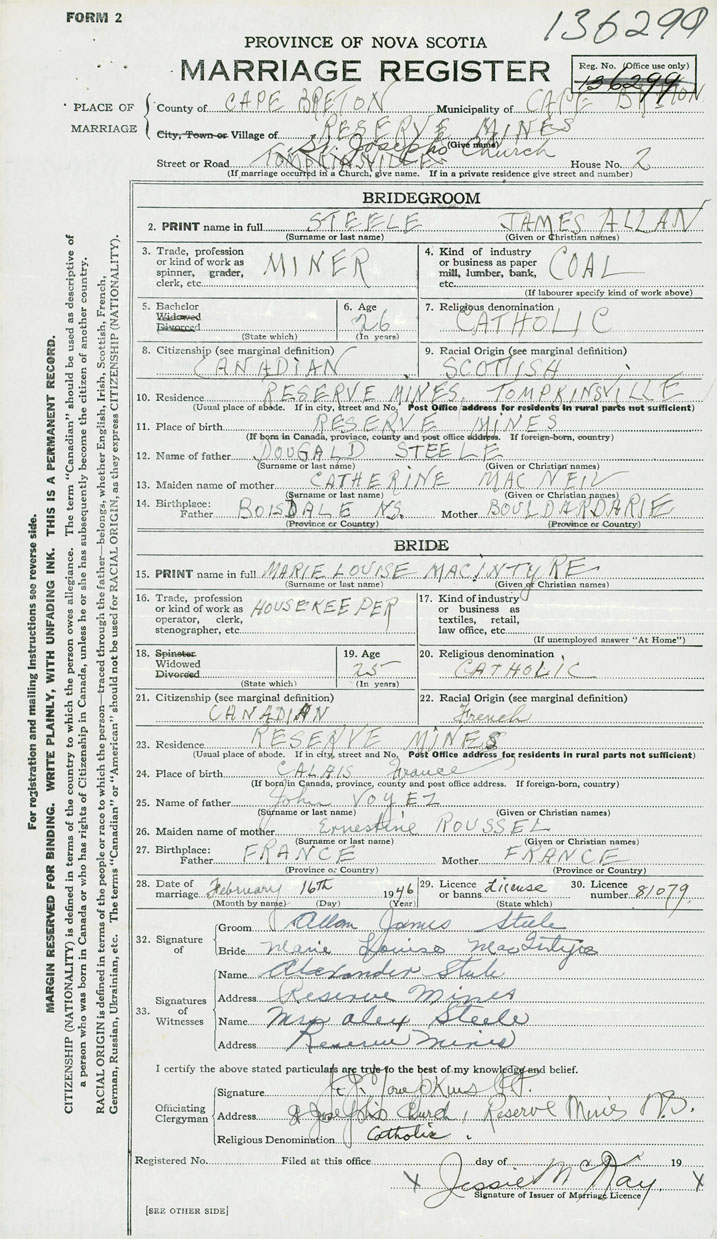 FORM 2
136299
PROVINCE OF NOVA SCOTIA
MARRIAGE REGISTER
Reg. No. (Office use only)
136299
PLACE OF MARRIAGE
County of CAPE BRETON Municipality of CAPE BRETON
City, Town or Village of RESERVE MINES
(Give name)
St. Joseph's Church
Street or Road TOMPKINSVILLE House No. 2
(If marriage occurred in a Church, give name. If in a private residence give street and number)
BRIDEGROOM
2. PRINT name in full STEELE JAMES ALLAN
(Surname or last name) (Given or Christian names)
3. Trade, profession or kind of work as spinner, grader, clerk, etc. MINER
4. Kind of industry or business as paper mill, lumber, bank, etc. COAL
(If labourer specify kind of work above)
5. Bachelor Widowed Divorced
(State which)
6. Age 26
(In years)
7. Religious denomination CATHOLIC
8. Citizenship (see marginal definition) CANADIAN
9. Racial Origin (see marginal definition) SCOTTISH
10. Residence RESERVE MINES, TOMPKINSVILLE
(Usual place of abode. If in city, street and No. Post Office address for residents in rural parts not sufficient)
11. Place of birth RESERVE MINES
(If born in Canada, province, county and post office address. If foreign-born, country)
12. Name of father DOUGALD STEELE
(Surname or last name) (Given or Christian names)
13. Maiden name of mother CATHERINE MAC NEIL
(Surname or last name) (Given or Christian names)
14. Birthplace: Father BOISDALE N.S. Mother BOULDARDARIE
(Province or Country) (Province or Country)
BRIDE
15. PRINT name in full MARIE LOUISE MACINTYRE
(Surname or last name) (Given or Christian names)
16. Trade, profession or kind of work as operator, clerk, stenographer, etc. HOUSEKEEPER
17. Kind of industry or business as textiles, retail, law office, etc.
(If unemployed answer "At Home")
18. Spinster Widowed Divorced
(State which)
19. Age 25
(In years)
20. Religious denomination CATHOLIC
21. Citizenship (see marginal definition) CANADIAN
22. Racial Origin (see marginal definition) French
23. Residence RESERVE MINES
(Usual place of abode. If in city, street and No. Post Office address for residents in rural parts not sufficient)
24. Place of birth CALAIS France
(If born in Canada, province, county and post office address. If foreign-born, country)
25. Name of father John VOYEZ
(Surname or last name) (Given or Christian names)
26. Maiden name of mother Ernestine ROUSSEL
(Surname or last name) (Given or Christian names)
27. Birthplace: Father FRANCE Mother FRANCE
(Province or Country) (Province or Country)
28. Date of marriage February 16th 1946
(Month by name) (Day) (Year)
29. Licence or banns License
(State which)
30. Licence number 81079
32. Signature of
Groom Allan James Steele
Bride Marie Louise MacIntyre
33. Signatures of Witnesses
Name Alexander Steele
Address Reserve Mines
Name Mrs Alex Steele
Address Reserve Mines
I certify the above stated particulars are true to the best of my knowledge and belief.
Officiating Clergyman
Signature Tompkins
Address St Joseph's Church, Reserve Mines N.S.
Religious Denomination Catholic
Registered No. Filed at this office day of 19
X Jessie McKay X
Signature of Issuer of Marriage Licence
[SEE OTHER SIDE]
For registration and mailing instructions see reverse side.
MARGIN RESERVED FOR BINDING. WRITE PLAINLY, WITH UNFADING INK. THIS IS A PERMANENT RECORD.
CITIZENSHIP (NATIONALITY) is defined in terms of the country to which the person owes allegiance. The term "Canadian" should be used as descriptive of
a person who was born in Canada or who has rights of Citizenship in Canada, unless he or she has subsequently become the citizen of another country.
RACIAL ORIGIN is defined in terms of the people or race to which the person—traced through the father—belongs, whether English, Irish, Scottish, French,
German, Russian, Ukrainian, etc. The terms "Canadian" or "American" should not be used for RACIAL ORIGIN, as they express CITIZENSHIP (NATIONALITY).